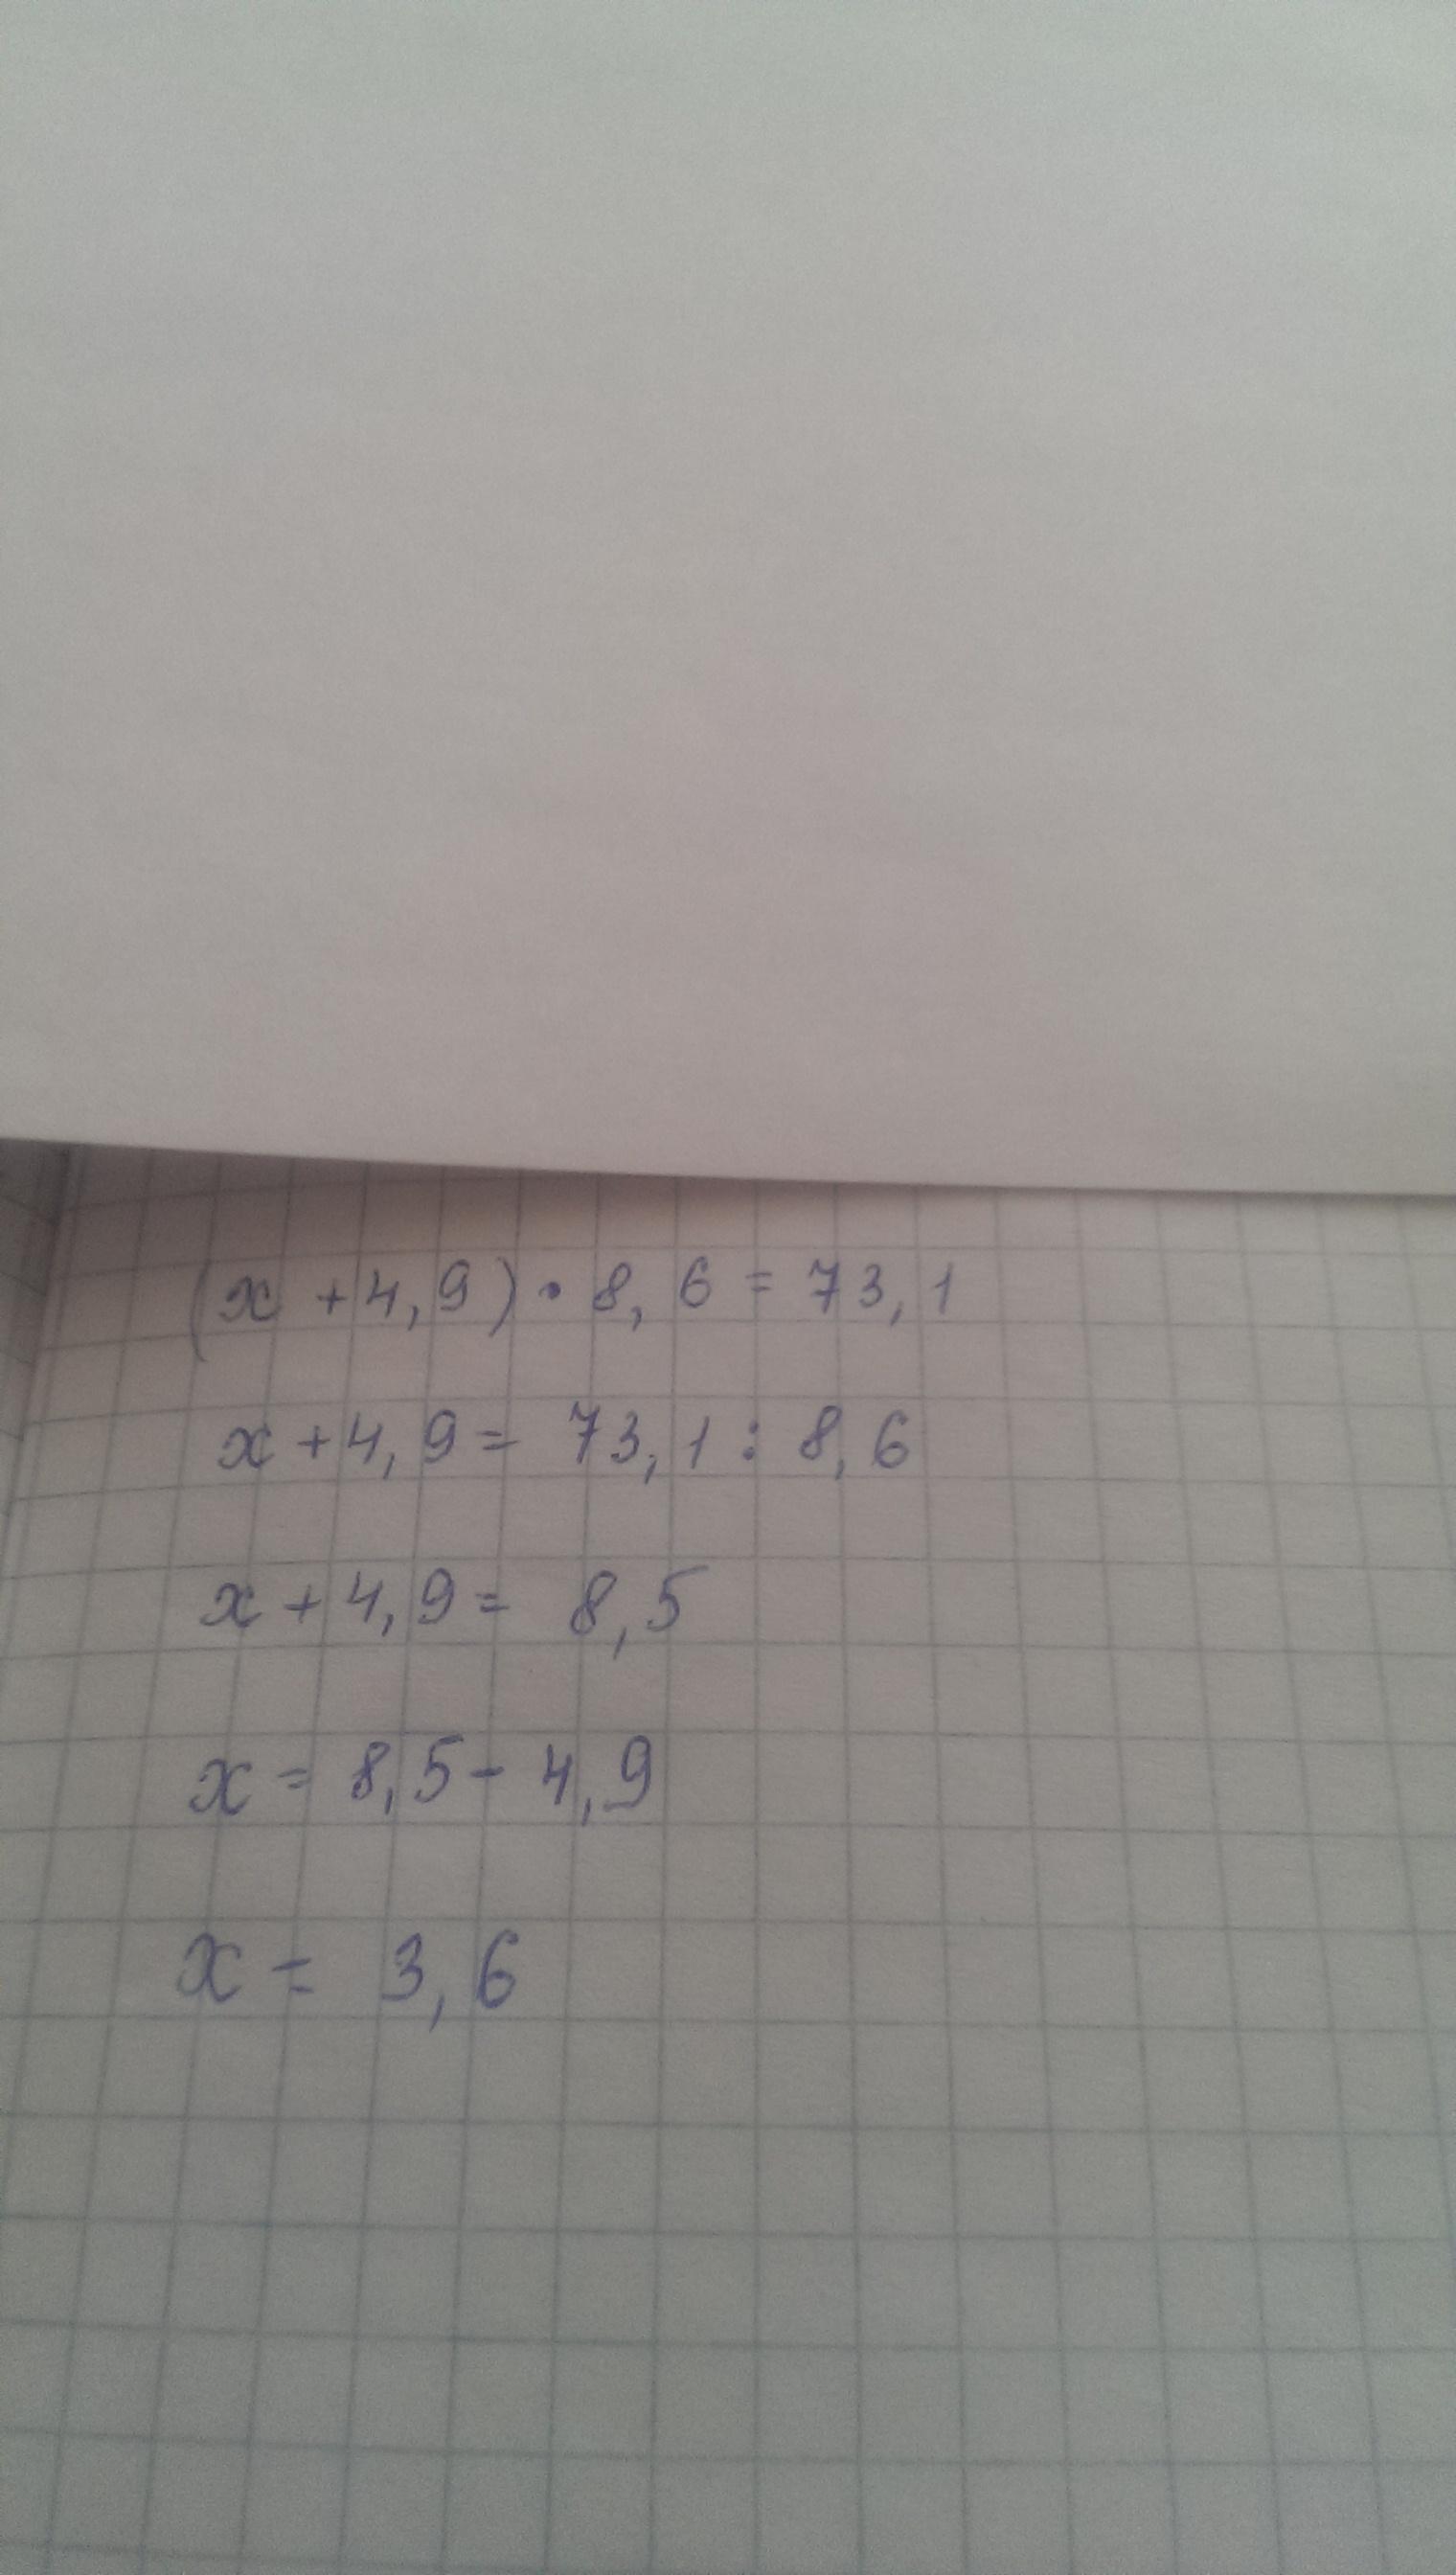 (x + 4,9) · 8,6 = 73,1
x + 4,9 = 73,1 : 8,6
x + 4,9 = 8,5
x = 8,5 - 4,9
x = 3,6